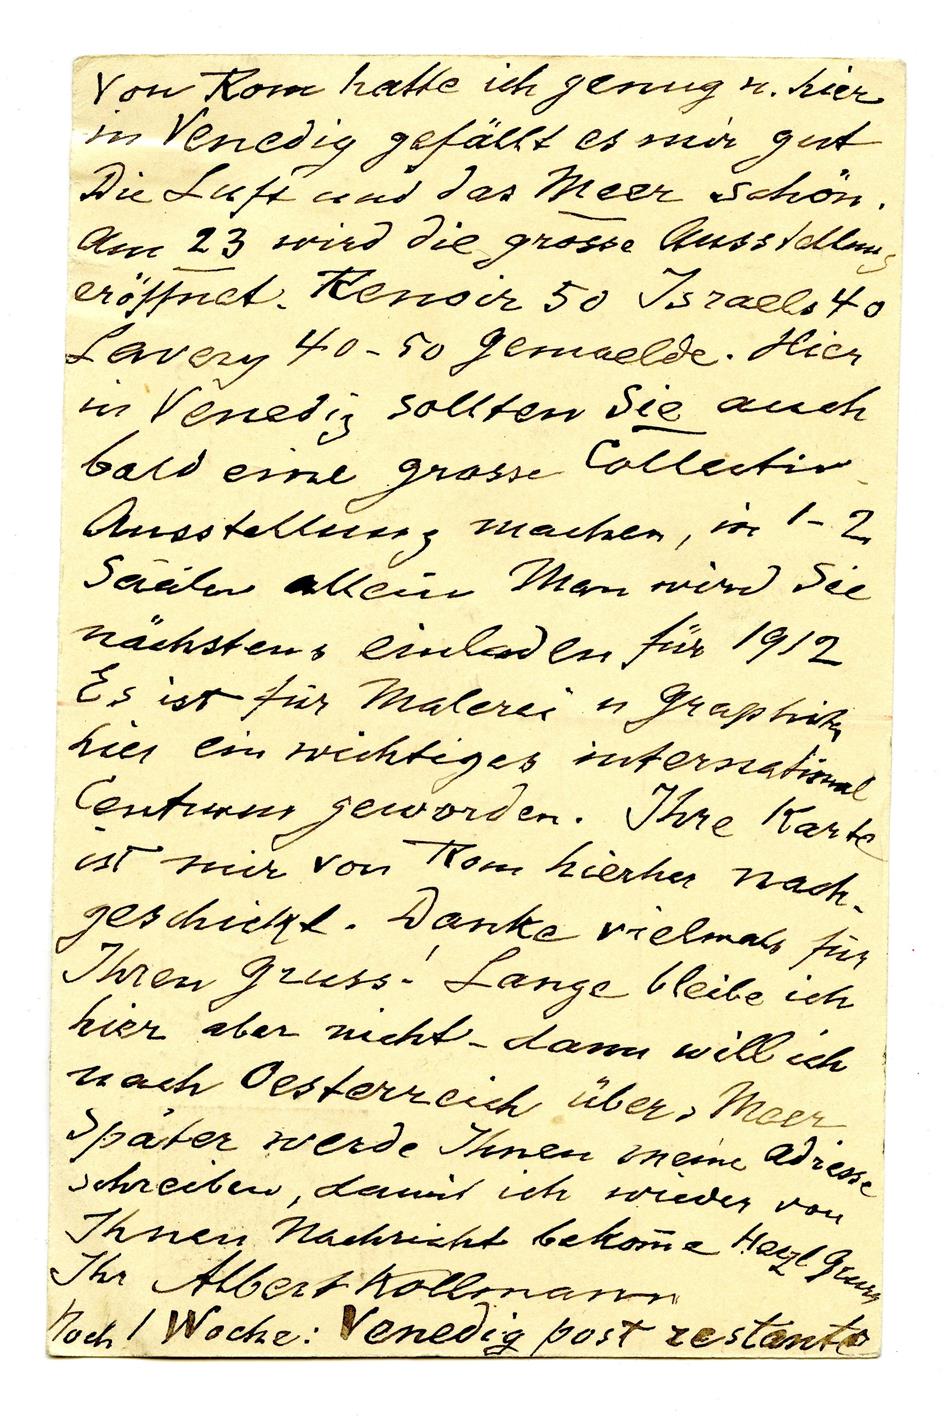 Von Rom hatte ich genug u. hier
in Venedig gefällt es mir gut
Die Luft und das Meer schön.
Am 23 wird die grosse Ausstellung
eröffnet. Renoir 50 Israels 40
Lavery 40-50 Gemaelde. Hier
in Venedig sollten Sie auch
bald eine grosse Collectiv
Ausstellung machen, in 1-2
Säälen allein Man wird Sie
nächstens einladen für 1912
Es ist für Malerei u Graphik
hier ein wichtiges international
Centrum geworden. Ihre Karte
ist mir von Rom hierher nach-
geschickt. Danke vielmals für
Ihren Gruss! Lange bleibe ich
hier aber nicht - dann will ich
nach Oesterreich über's Meer
Später werde Ihnen meine Adresse
schreiben, damit ich wieder von
Ihnen Nachricht bekom̄e Herzl Gruss
Ihr Albert Kollmann
Noch 1 Woche: Venedig post restante